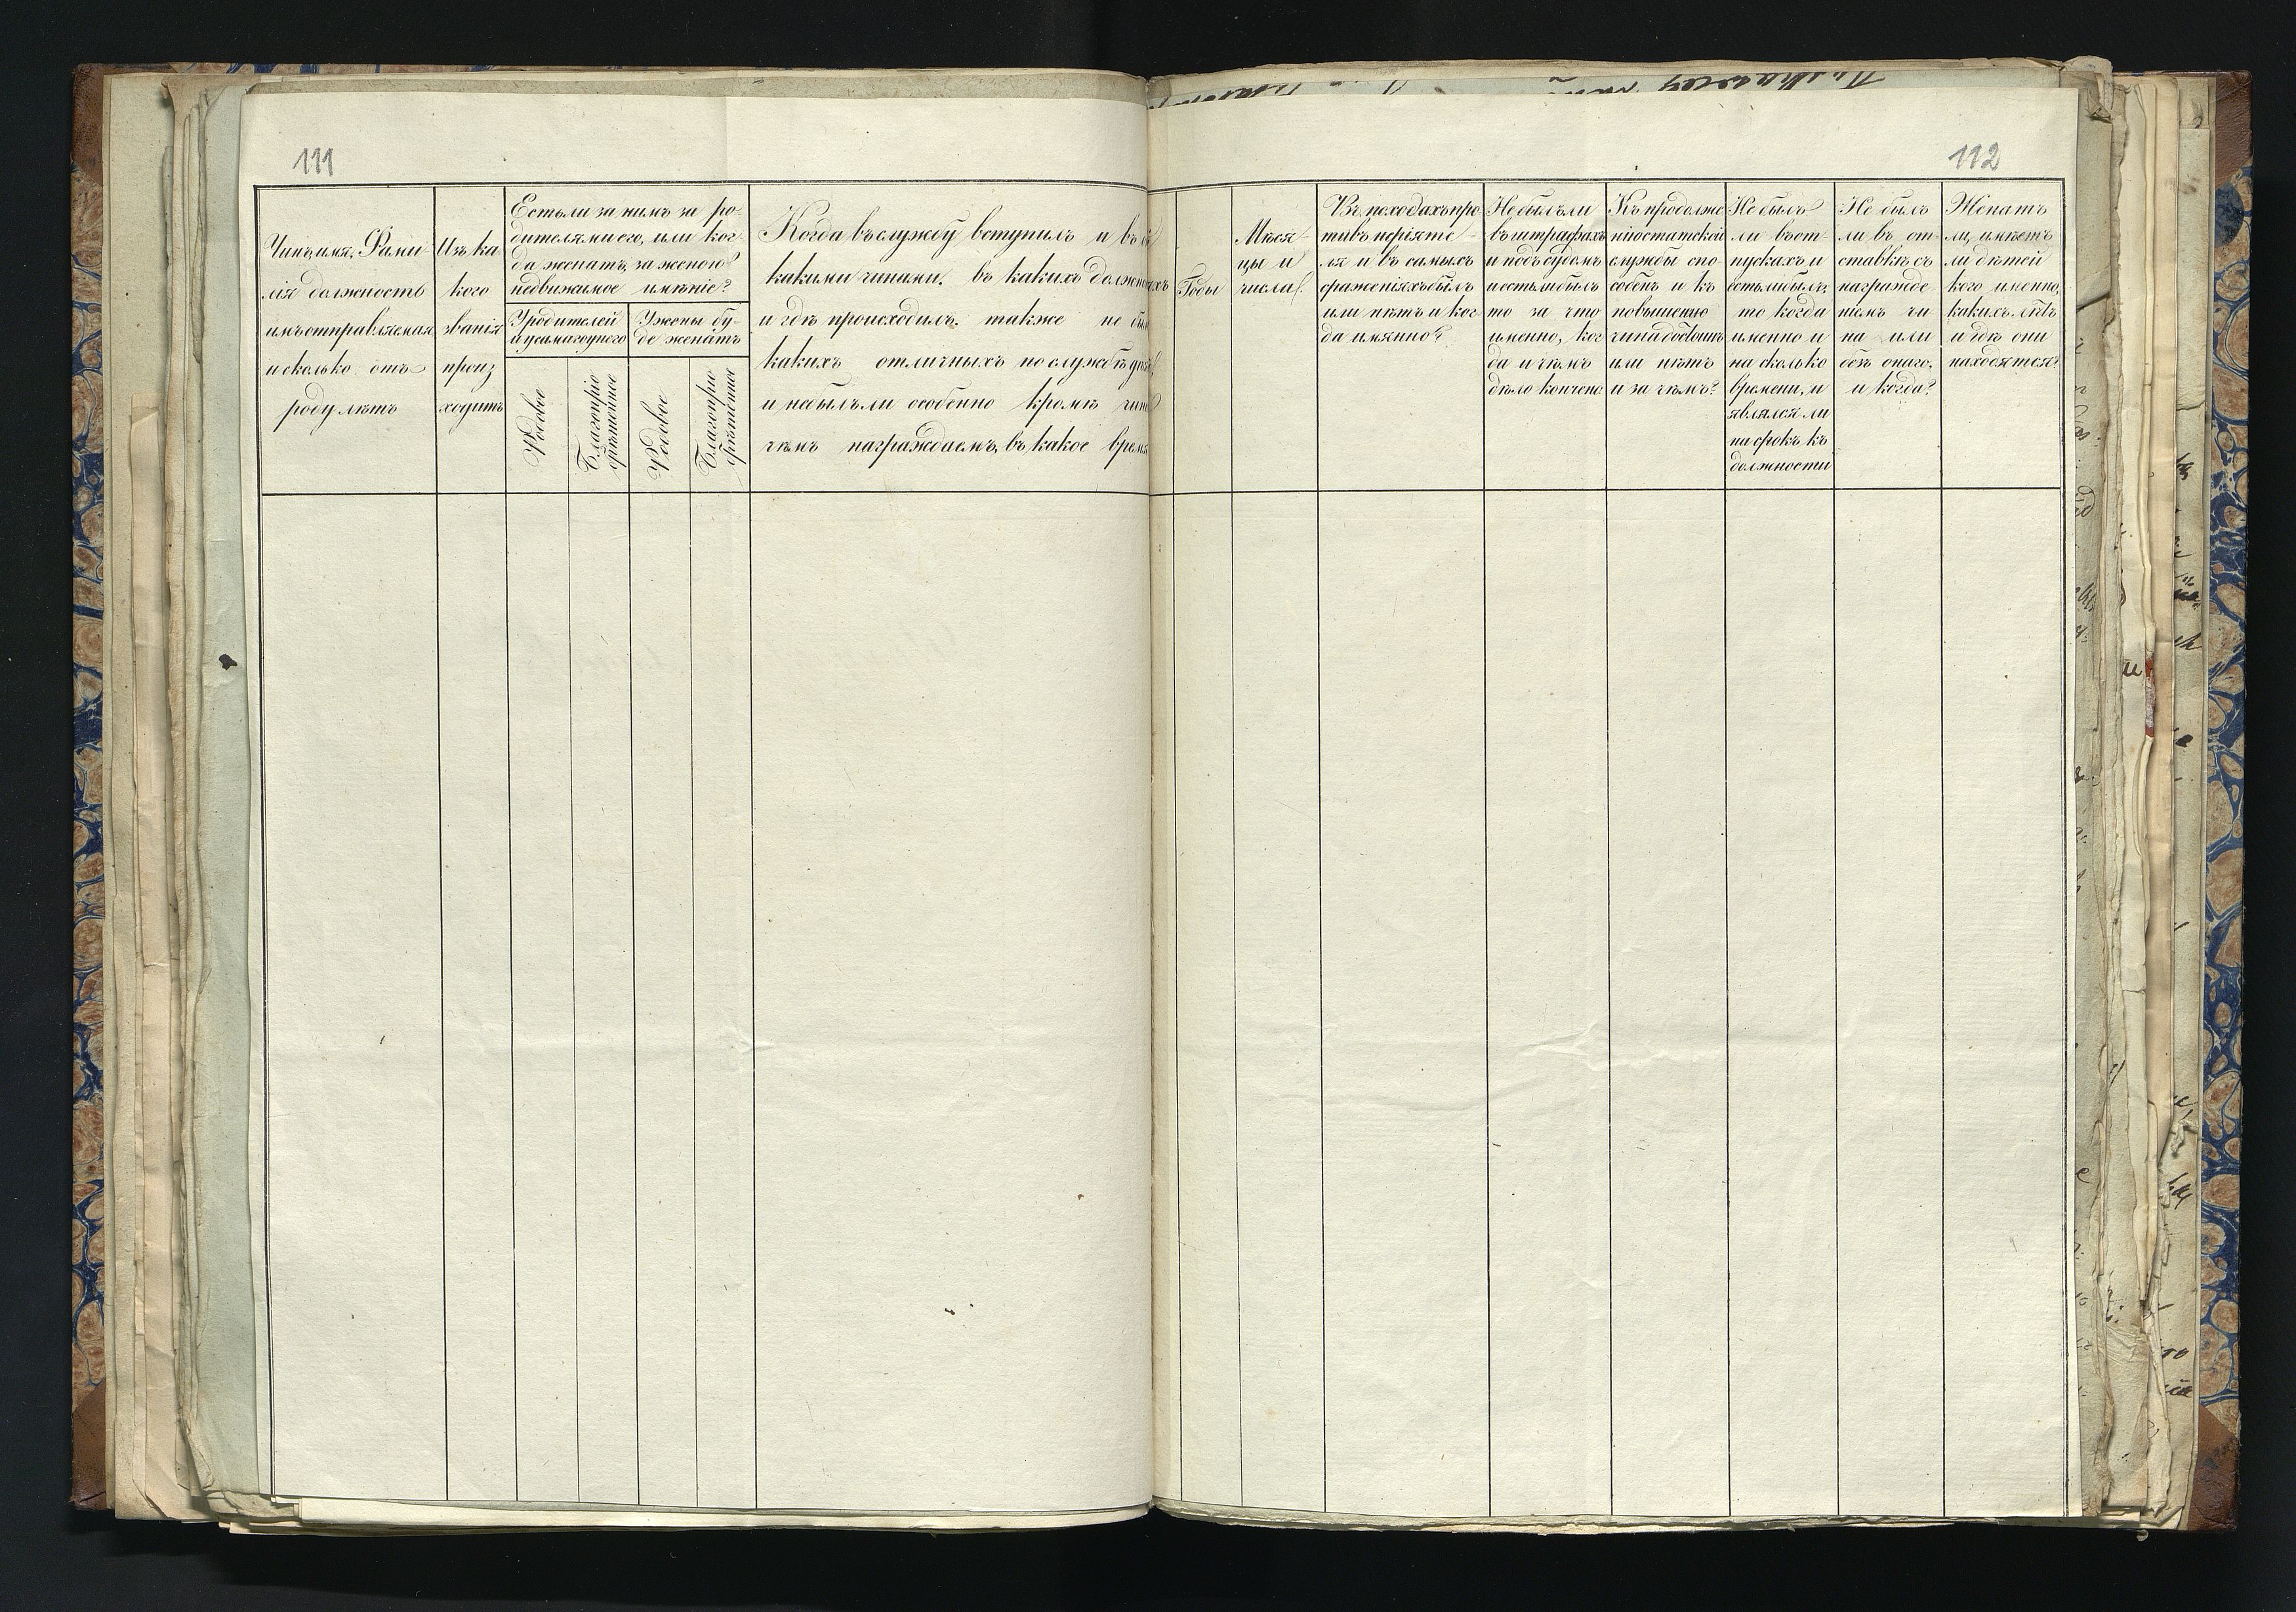 111
112
Чинъ имя, Фами
лія должность
имъ отправляемая
и сколько отъ
роду лѣтъ
Изъ ка
кого
званія
произ
ходитъ
Есть ли за нимъ за ро-
дителями его, или ког
да женатъ, за женою
недвижимое имѣніе?
У родителей
и у самаго у него
У жены бу-
де женатъ
Родовое
Благопріо
брѣтенное
Родовое
Благопріо
брѣтенное
Когда въ службу вступилъ и въ
какими чинами, въ какихъ должностяхъ
и гдѣ происходилъ: также не было
какихъ отличныхъ по службѣ
и небылъ ли особенно кромѣ чино
чѣмъ награждаемъ, въ какое время
Годы
Мѣся
цы и
числа.
Въ походахъ про
тивъ непріяте-
ля и въ самыхъ
сраженіяхъ былъ
или нѣтъ и ког
да имянно?
Небылъ ли
въ штрафахъ
и подъ судомъ
и естьли былъ
то за что
именно, ког
да и чѣмъ
дѣло кончено
Къ продолже
нію статской
службы спо-
собенъ и къ
повышенію
чина достоинъ
или нѣтъ
и за чѣмъ?
Не былъ
ли въ от-
пускахъ и
естьли былъ,
то когда
именно и
на сколько
времени, и
являлся ли
на срокъ къ
должности
Не былъ
ли въ от-
ставкѣ съ
награжде-
ніемъ чи
на или
безъ онаго,
и когда?
Женатъ
ли, имѣетъ
ли дѣтей
кого именно,
какихъ лѣтъ
и гдѣ они
находятся?